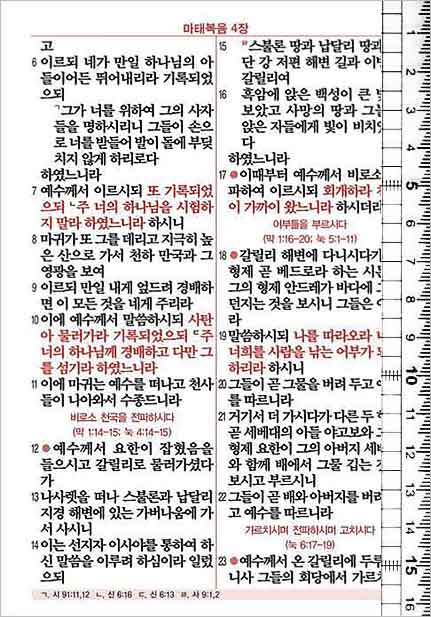 마태복음 4장
고
6 이르되 네가 만일 하나님의 아
들이어든 뛰어내리라 기록되었
으되
ㄱ그가 너를 위하여 그의 사자
들을 명하시리니 그들이 손으
로 너를 받들어 발이 돌에 부딪
치지 않게 하리로다
하였느니라
7 예수께서 이르시되 또 기록되었
으되 ㄴ주 너의 하나님을 시험하
지 말라 하였느니라 하시니
8 마귀가 또 그를 데리고 지극히 높
은 산으로 가서 천하 만국과 그
영광을 보여
9 이르되 만일 내게 엎드려 경배하
면 이 모든 것을 네게 주리라
10 이에 예수께서 말씀하시되 사탄
아 물러가라 기록되었으되 ㄷ주
너의 하나님께 경배하고 다만 그
를 섬기라 하였느니라
11 이에 마귀는 예수를 떠나고 천사
들이 나아와서 수종드니라
비로소 천국을 전파하시다
(막 1:14-15; 눅 4:14-15)
12 ●예수께서 요한이 잡혔음을
들으시고 갈릴리로 물러가셨다
가
13 나사렛을 떠나 스불론과 납달리
지경 해변에 있는 가버나움에 가
서 사시니
14 이는 선지자 이사야를 통하여 하
신 말씀을 이루려 하심이라 일렀
으되
15 ㄹ스불론 땅과 납달리 땅과
단 강 저편 해변 길과 이방
갈릴리여
16 흑암에 앉은 백성이 큰
보았고 사망의 땅과 그늘
앉은 자들에게 빛이 비치었
다
하였느니라
17 ●이때부터 예수께서 비로소
파하여 이르시되 회개하라
이 가까이 왔느니라 하시더라
어부들을 부르시다
(막 1:16-20; 눅 5:1-11)
18 ●갈릴리 해변에 다니시다가
형제 곧 베드로라 하는 시몬
그의 형제 안드레가 바다에
던지는 것을 보시니 그들은
라
19 말씀하시되 나를 따라오라
너희를 사람을 낚는 어부가
하리라 하시니
20 그들이 곧 그물을 버려 두고
를 따르니라
21 거기서 더 가시다가 다른 두
곧 세베대의 아들 야고보와
형제 요한이 그의 아버지 세베
와 함께 배에서 그물 깁는
보시고 부르시니
22 그들이 곧 배와 아버지를 버려
고 예수를 따르니라
가르치시며 전파하시며 고치시다
(눅 6:17-19)
23 ●예수께서 온 갈릴리에 두루
니사 그들의 회당에서 가르치
ㄱ. 시 91:11,12 ㄴ. 신 6:16 ㄷ. 신 6:13 ㄹ. 사 9:1,2
1
2
3
4
5
6
7
8
9
10
11
12
13
14
15
16